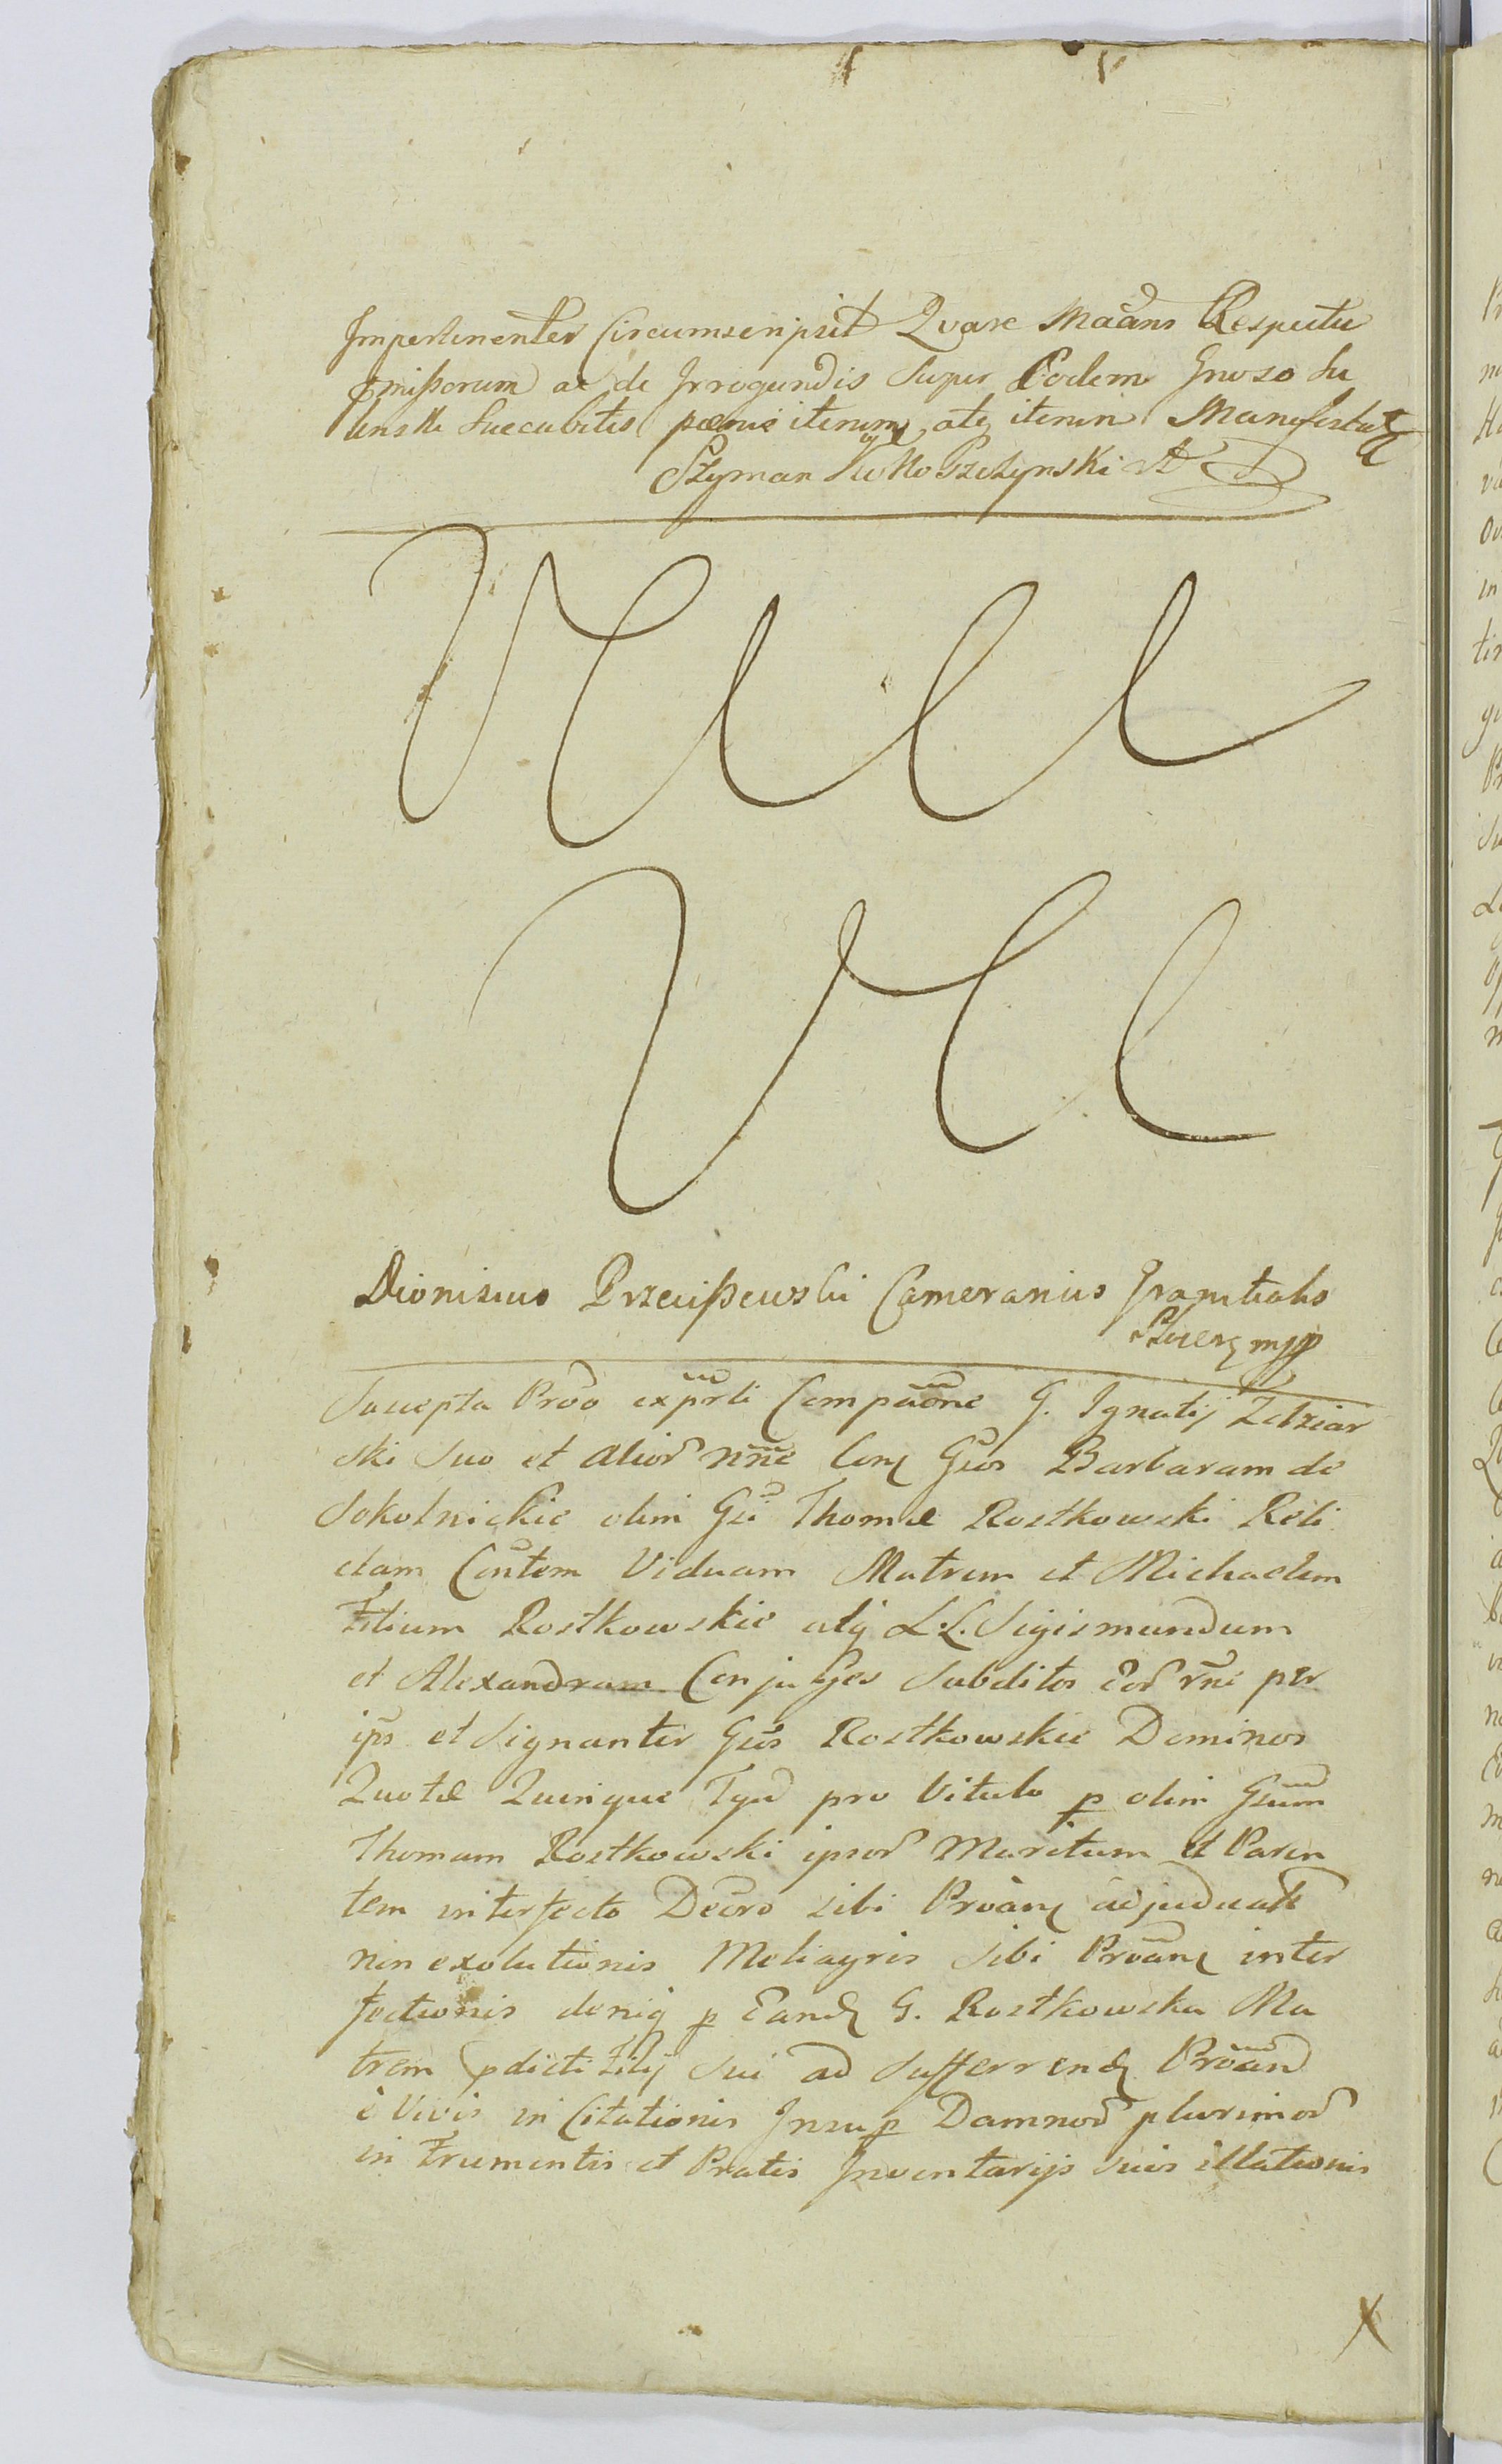 Impertinenter Circumscripsit Quare Maans Respectu
pmißorum ac de Irrogandis Super Eodem Gnoso Su
linski Succubitis paenis iterum atq iterum Manifestat
Szyman
Dionisius Przeciszewski Camerarius Granitialis
mpp
Suscepta Proo exprti Compaone G. Ignatij Zdziar
ski Suo et alior nne Cong Gsos Barbaram de
Sokolnickie olim Gsi Thomae Rostkowski Reli
ctam Contem Viduam Matrem et Michaelem
Filium Rostkowskie atq L.L. Sigismundum
et Alexandram Conjuges Subditos Eor rne per
ips et Signanter Gsos Rostkowskie Dominos
Quotae Quinque Tyn pro Vitulo p olim Gsum
Thomam Rostkowski ipsor Maritum et Paren
tem interfecto Decro sibi Proang adjudicat
non exolutionis Meliagris sibi Proang inter
fectionis deniq p Eand G. Rostkowska Ma
trem pdicti Filij Sui ad Sufferrend Proand
è Vivis in Citationis Insup Damnor plurimor
in Frumentis et Pratis Inventarijs Suis illationis
X